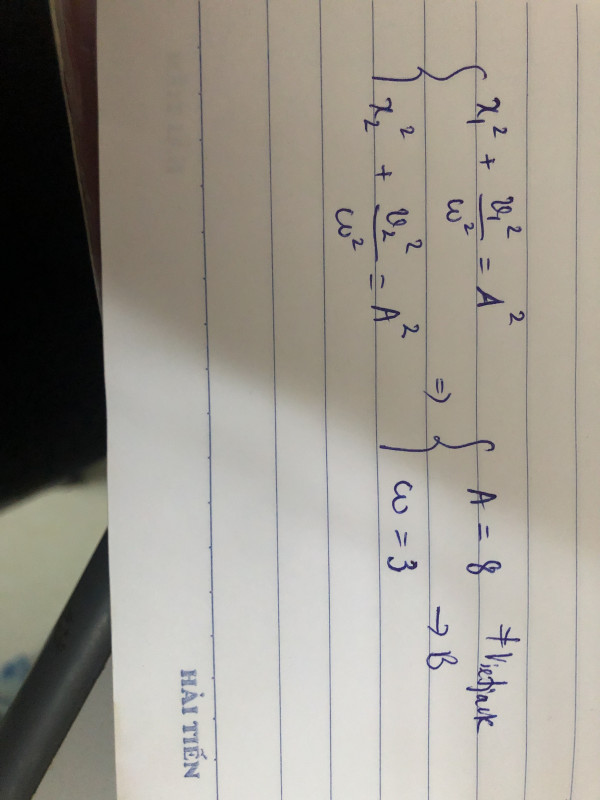 x₁² + v₁²/ω² = A²
x₂² + v₂²/ω² = A²
=> A = 8
ω = 3
→ B
#Vietjack
HẢI TIẾN